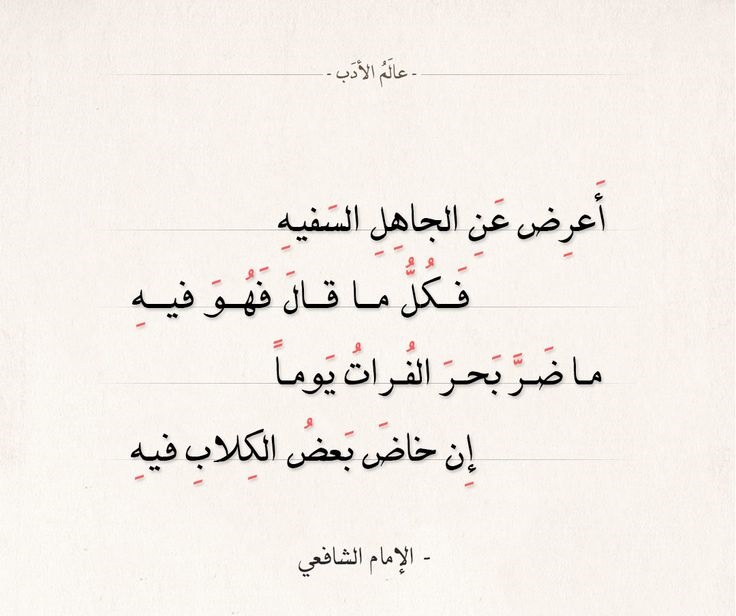 - عالَمُ الأدَب -
أَعرِض عَنِ الجاهِلِ السَفيهِ
فَـكُلُّ مـا قـالَ فَهُـوَ فيـهِ
مـا ضَـرَّ بَحـرَ الفُـراتُ يَومـاً
إِن خاضَ بَعضُ الكِلابِ فيهِ
- الإمام الشافعي